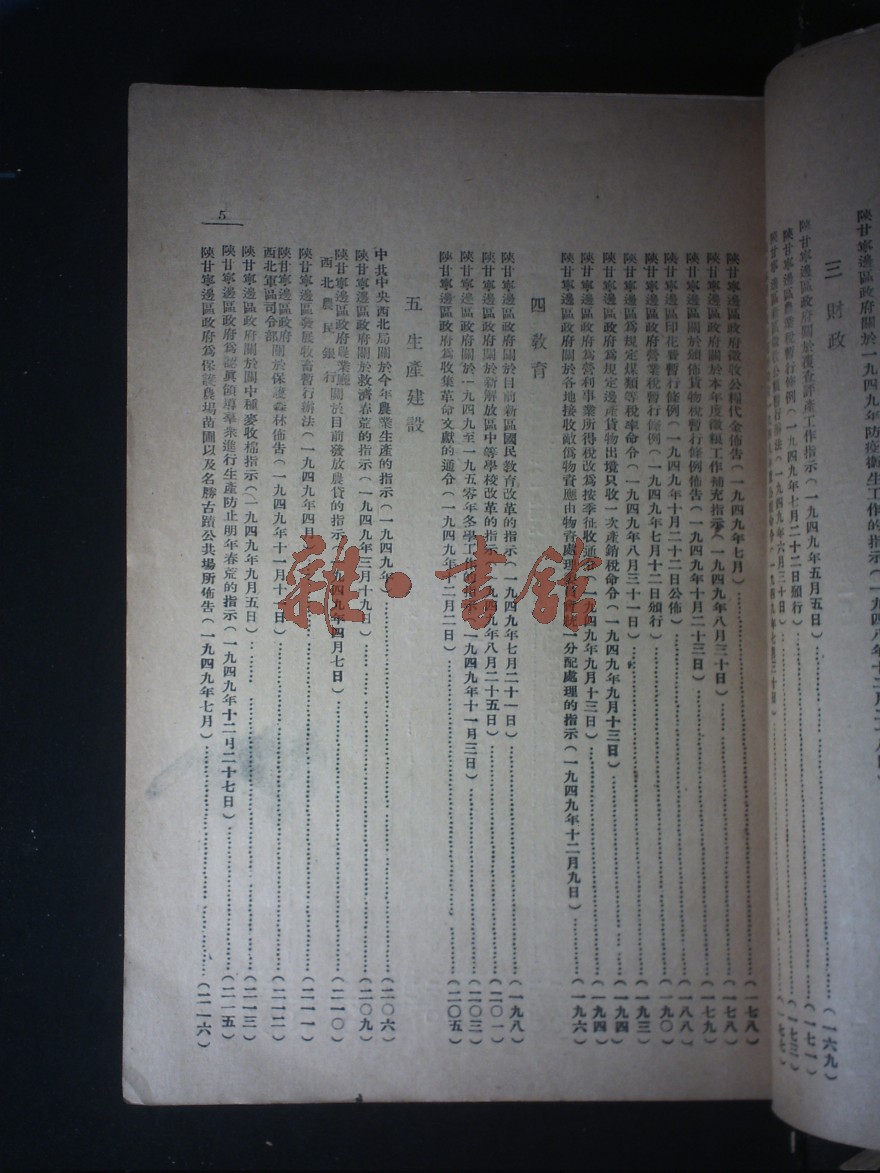 陝甘寧邊區政府關於一九四九年防疫衛生工作的指示
三 財政
陝甘寧邊區政府關於覆查評產工作指示(一九四九年五月五日)……(一六九)
陝甘寧邊區農業稅暫行條例(一九四九年七月二十二日頒行)……(一七一)
陝甘寧邊區政府徵收公糧代金佈告(一九四九年七月)……(一七八)
陝甘寧邊區政府關於本年度徵糧工作補充指示(一九四九年八月三十日)……(一七八)
陝甘寧邊區政府關於頒佈貨物稅暫行條例佈告(一九四九年十月二十三日)……(一七九)
陝甘寧邊區印花稅暫行條例(一九四九年十月二十二日公佈)……(一八八)
陝甘寧邊區政府營業稅暫行條例(一九四九年七月十二日頒行)……(一九〇)
陝甘寧邊區爲規定煤類等稅率命令(一九四九年八月三十一日)……(一九三)
陝甘寧邊區政府爲規定邊產貨物出境只收一次產銷稅命令(一九四九年九月十三日)……(一九四)
陝甘寧邊區政府爲營利事業所得稅改爲按季征收通令(一九四九年九月十三日)……(一九四)
陝甘寧邊區政府關於各地接收敵僞物資應由物資處理委員會統一分配處理的指示(一九四九年十二月九日)……(一九六)
四 教育
陝甘寧邊區政府關於目前新區國民教育改革的指示(一九四九年七月二十一日)……(一九八)
陝甘寧邊區政府關於新解放區中等學校改革的指示(一九四九年八月二十五日)……(二〇一)
陝甘寧邊區政府關於一九四九至一九五〇年冬學工作的指示(一九四九年十一月三日)……(二〇三)
陝甘寧邊區政府爲收集革命文獻的通令(一九四九年十二月二日)……(二〇五)
五 生產建設
中共中央西北局關於今年農業生產的指示(一九四九年)……(二〇六)
陝甘寧邊區政府關於救濟春荒的指示(一九四九年三月十九日)……(二〇九)
陝甘寧邊區政府農業廳
西北農民銀行 關於目前發放農貸的指示(一九四九年四月七日)……(二一〇)
陝甘寧邊區發展牧畜暫行辦法(一九四九年四月)……(二一一)
陝甘寧邊區政府
西北軍區司令部 關於保護森林佈告(一九四九年十一月十一日)……(二一二)
陝甘寧邊區政府關於關中種麥收棉指示(一九四九年九月五日)……(二一三)
陝甘寧邊區政府爲認眞領導羣衆進行生產防止明年春荒的指示(一九四九年十二月二十七日)……(二一五)
陝甘寧邊區政府爲保護農場苗圃以及名勝古蹟公共場所佈告(一九四九年七月)……(二一六)
5
雜·書館